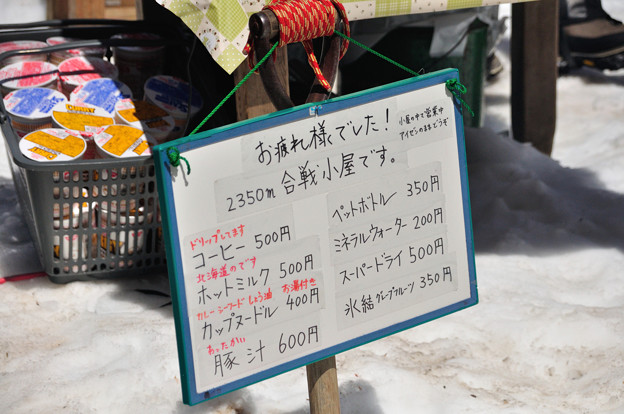 お疲れ様でした!
小屋の中で営業中
アイゼンのままどうぞ
2350m 合戦小屋です。
ドリップしてます
コーヒー 500円
北海道のです
ホットミルク 500円
カレー シーフード しょう油 お湯付き
カップヌードル 400円
あったかい
豚汁 600円
ペットボトル 350円
ミネラルウォーター 200円
スーパードライ 500円
氷結 グレープフルーツ 350円
CURRY